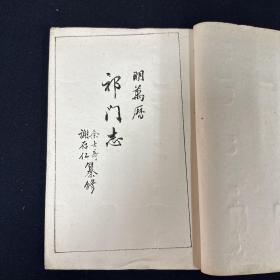 明萬曆
祁门志
余士奇
謝存仁
纂修